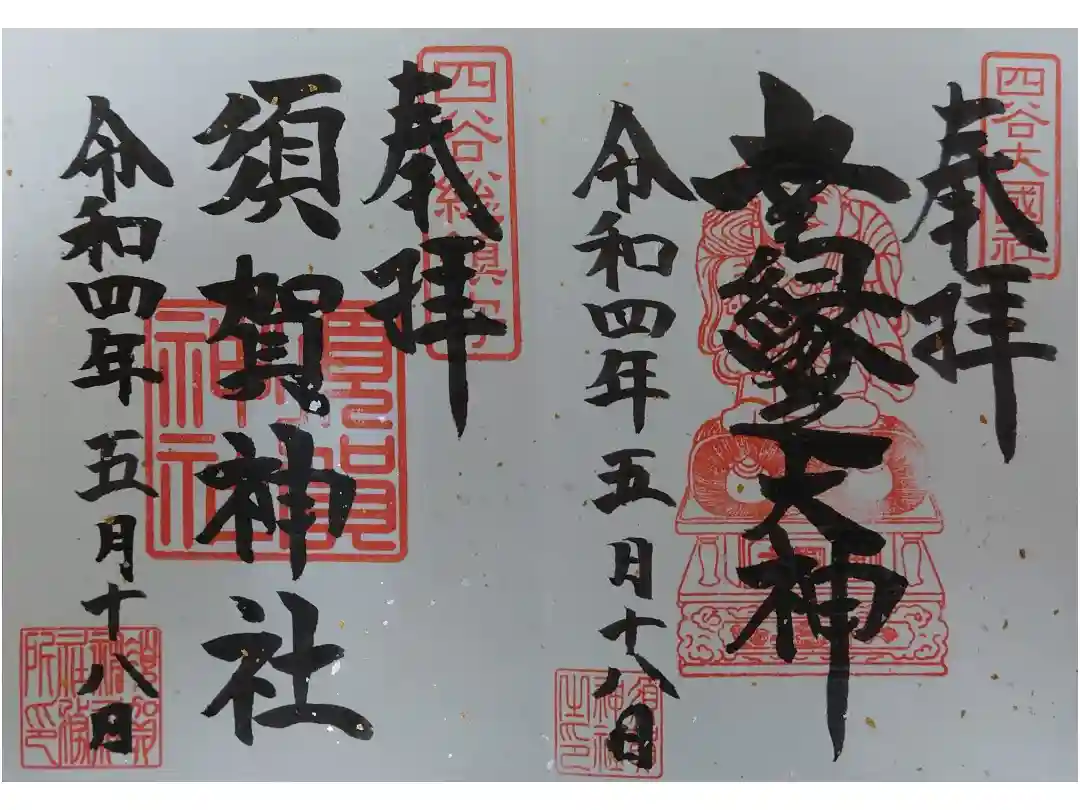 四谷大國社
奉拝
幸縁大神
令和四年五月十八日
須賀神社之印
四谷総鎮守
奉拝
須賀神社
須賀神社
令和四年五月十八日